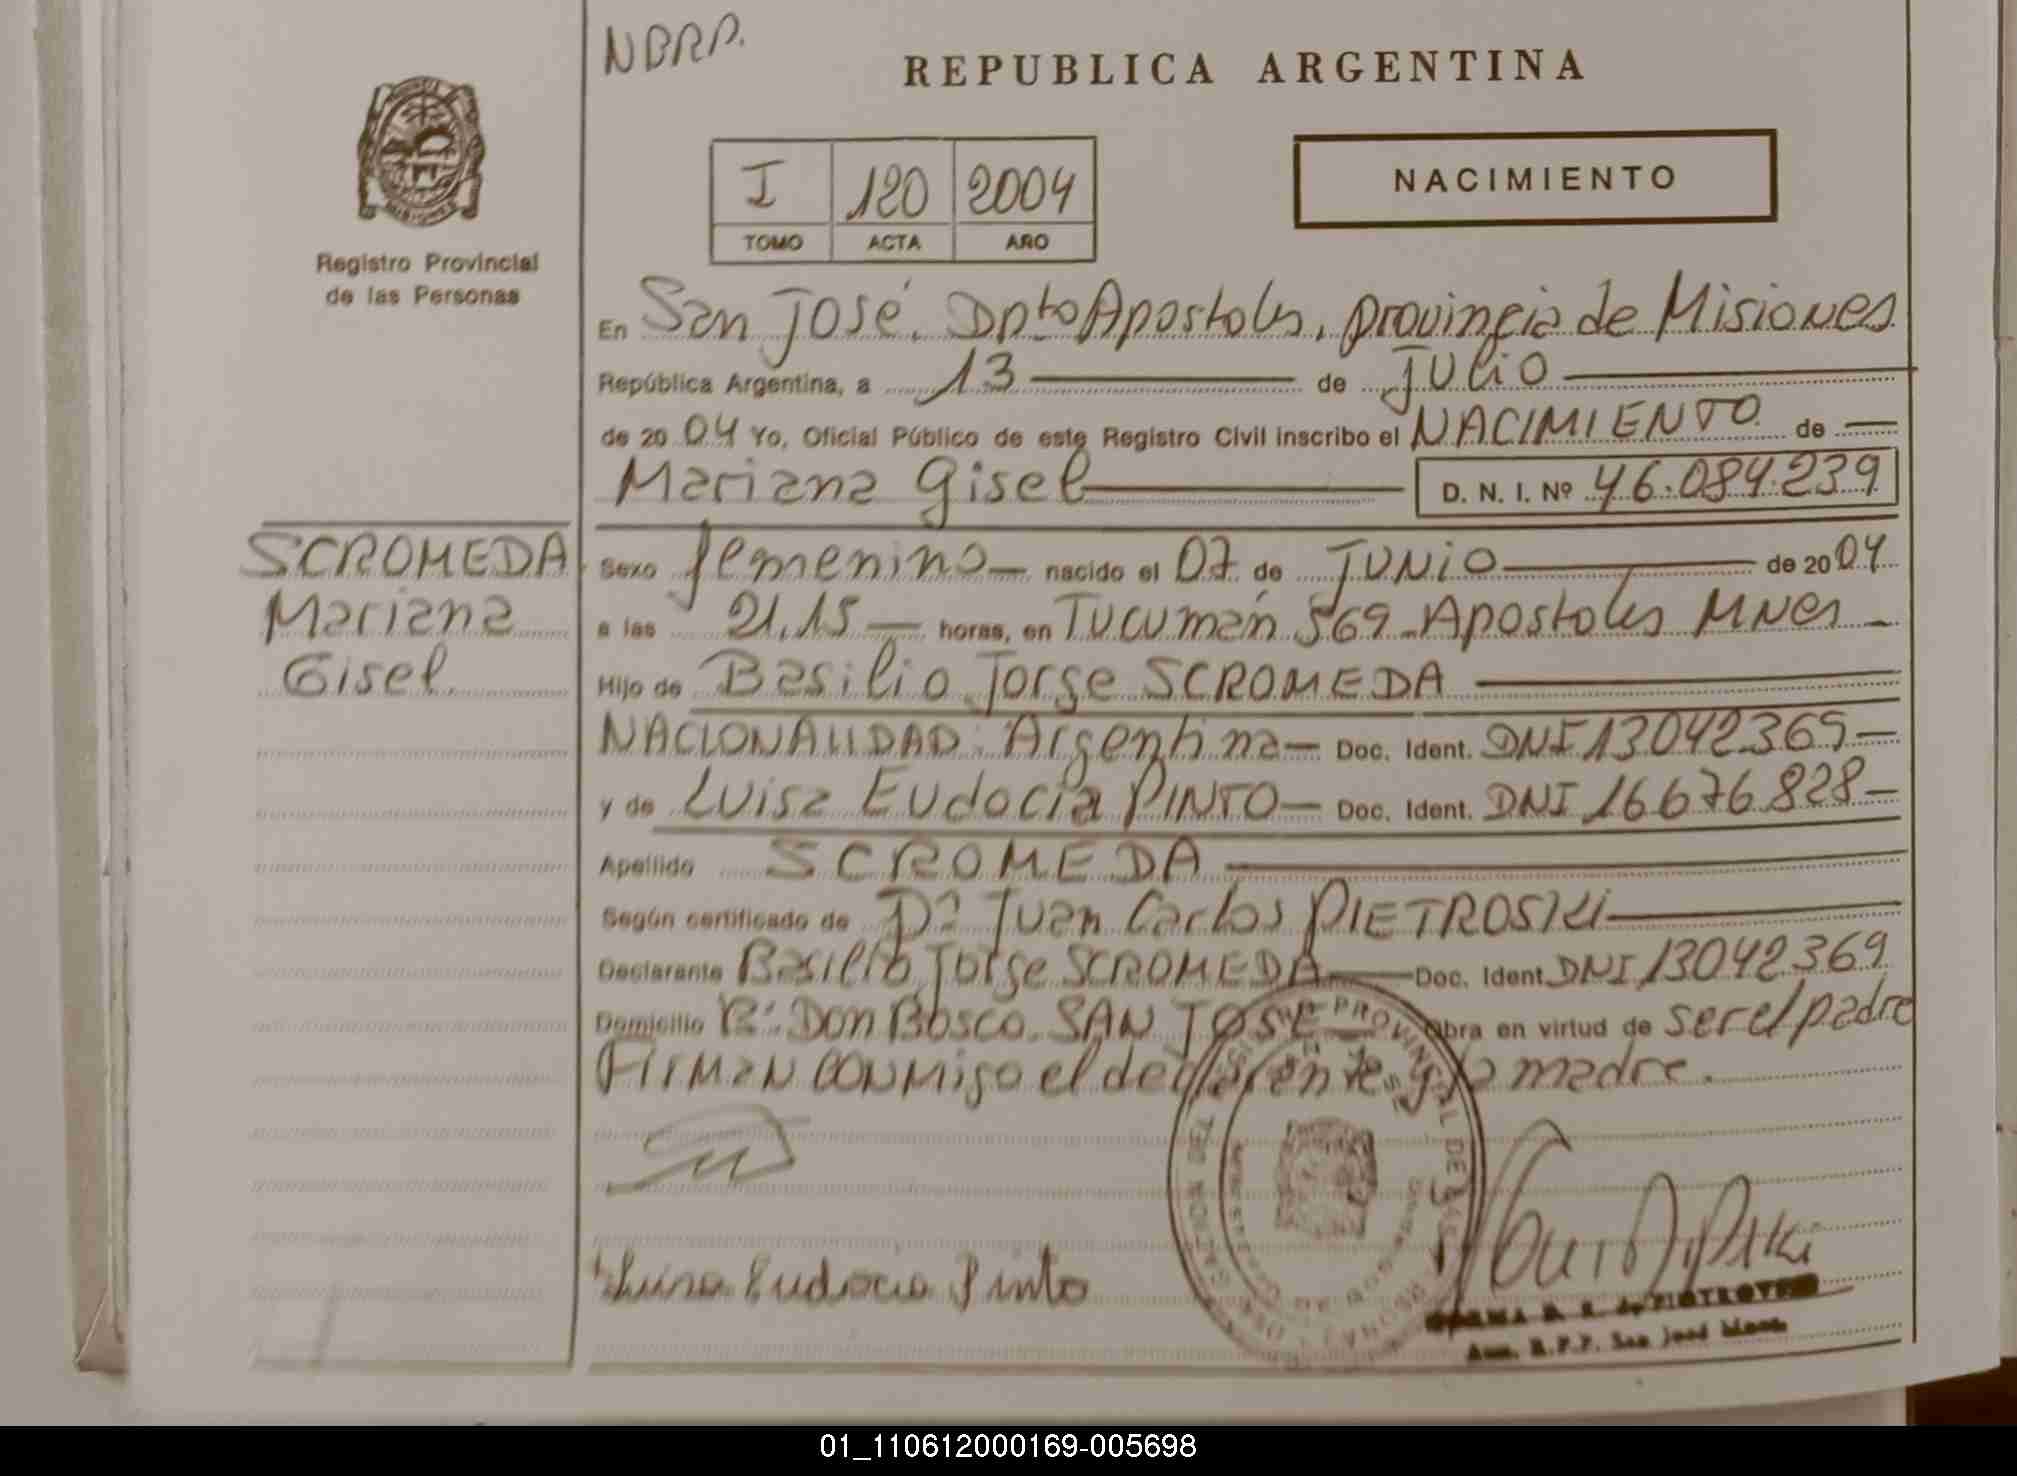 NBRP.
REPUBLICA ARGENTINA
I 120 2004
TOMO ACTA AÑO
NACIMIENTO
Registro Provincial
de las Personas
En San José. Dpto Apostoles, provincia de Misiones
República Argentina, a 13 de Julio
de 2004 Yo, Oficial Público de este Registro Civil inscribo el NACIMIENTO de
Mariana Gisel D. N. I. Nº 46.084.239
SCROMEDA
Mariana
Gisel
Sexo femenino nacido el 07 de JUNIO de 2004
a las 21,15 horas, en Tucumán 569 - Apostoles MNES
Hijo de Basilio Jorge SCROMEDA
NACIONALIDAD: Argentina Doc. Ident. DNI 13042369
y de Luisa Eudocia PINTO Doc. Ident. DNI 16676828
Apellido SCROMEDA
Según certificado de Dº Juan Carlos PIETROSKI
Declarante Basilio Jorge SCROMEDA Doc. Ident. DNI 13042369
Domicilio Bº Don Bosco. SAN JOSE Obra en virtud de ser el padre
FIRMAN CONMigo el declarante y la madre.
Luisa Eudocia Pinto
Aux. R.P.P. San José Mnes.
01_110612000169-005698